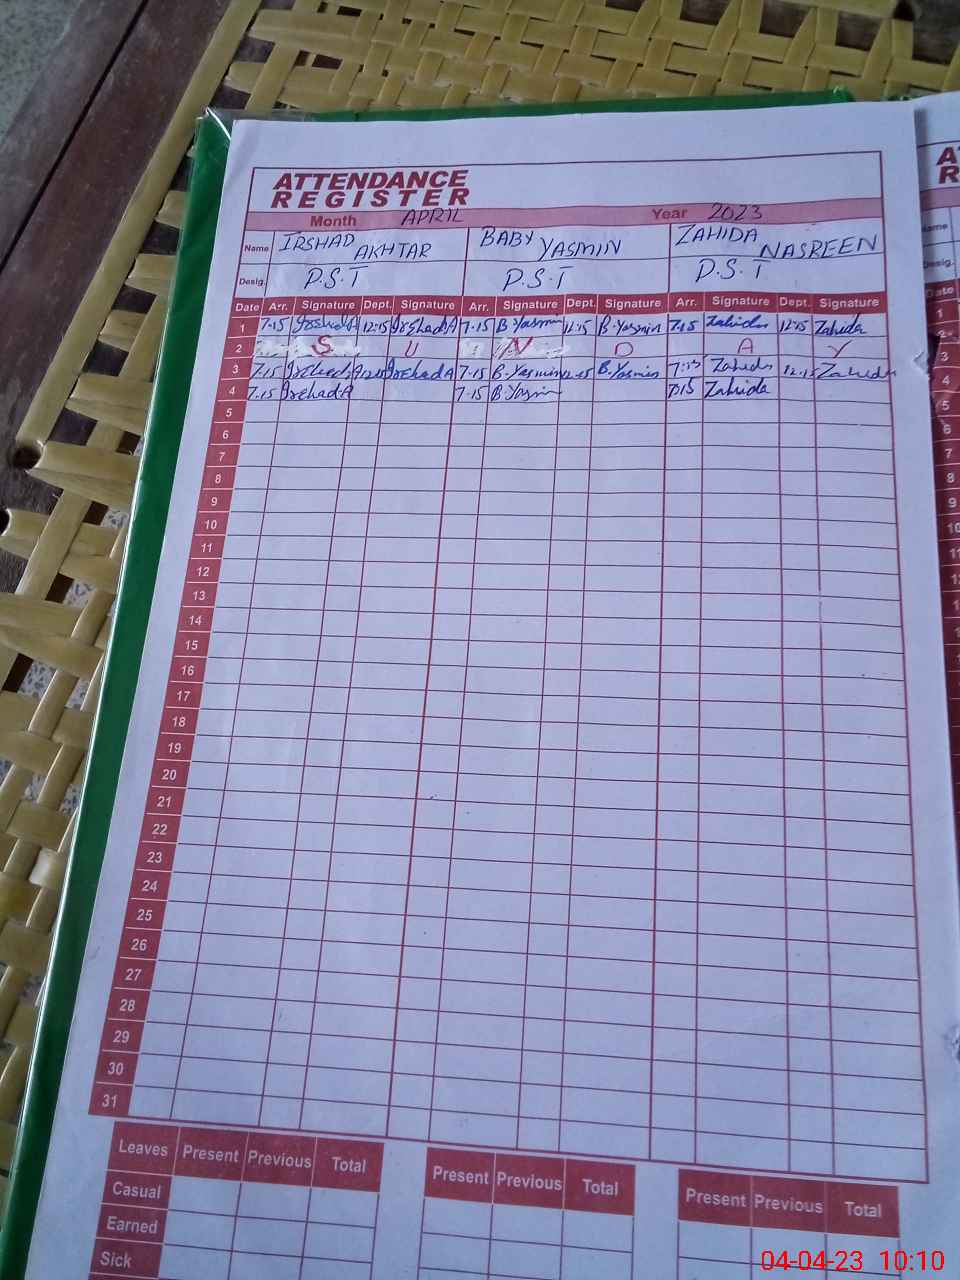 ATTENDANCE
REGISTER
Month APRIL Year 2023
Name IRSHAD AKHTAR BABY YASMIN ZAHIDA NASREEN
Desig. P.S.T P.S.T P.S.T
Date Arr. Signature Dept. Signature Arr. Signature Dept. Signature Arr. Signature Dept. Signature
1 7-15 IrshadA 12:15 IrshadA 7-15 B.Yasmin 12-15 B.Yasmin 7-15 Zahida 12-15 Zahida
2 S U N D A Y
3 7-15 IrshadA IrshadA 7-15 B.Yasmin B.Yasmin Zahida Zahida
4 7-15 IrshadA 7-15 B.Yasmin 7:15 Zahida
5
6
7
8
9
10
11
12
13
14
15
16
17
18
19
20
21
22
23
24
25
26
27
28
29
30
31
Leaves Present Previous Total Present Previous Total Present Previous Total
Casual
Earned
Sick
A
R
Name
Desig.
Date
1
3
4
5
6
7
8
9
10
04-04-23 10:10